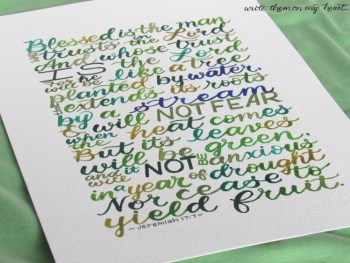 write them on my heart...
Blessed is the man
who trusts in the Lord
And whose trust
IS the Lord
For he will be like a tree
planted by water,
that extends its roots
by a stream
& will NOT FEAR
when heat comes
But its leaves
will be green,
and it will NOT be anxious
in a year of drought
Nor cease to
yield fruit.
~Jeremiah 17:7~